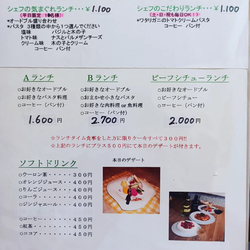 シェフの気まぐれランチ・・・¥1.100
・オードブル盛り合わせ
・パスタ 3種類の中から1つお選び下さい
塩味 バジルと木の子
トマト味 ナスとパルメザンチーズ
クリーム味 木の子とクリーム
コーヒー(パン付)
シェフのこだわりランチ・・・¥1.100
・ワタリガニのトマトクリームパスタ
コーヒー(パン付)
Aランチ
・お好きなオードブル
・お好きなパスタ料理
・コーヒー(パン付)
1.600円
Bランチ
・お好きなオードブル
・お好きなパスタ料理
・お好きな肉料理or魚料理
・コーヒー(パン付)
2.700円
ビーフシチューランチ
・お好きなオードブル
・ビーフシチュー
・コーヒー(パン付)
2.000円
※ランチタイム食事をした方に限りケーキすべて300円
※上記のランチにプラス500円にて本日のデザートが付きます
ソフトドリンク
・ウーロン茶・・・・300円
・オレンジジュース・・400円
・りんごジュース・・・400円
・コーラ・・・400円
・ジンジャエール・・・400円
・コーヒー・・・450円
・紅茶・・・450円
・ココア・・・500円
本日のデザート